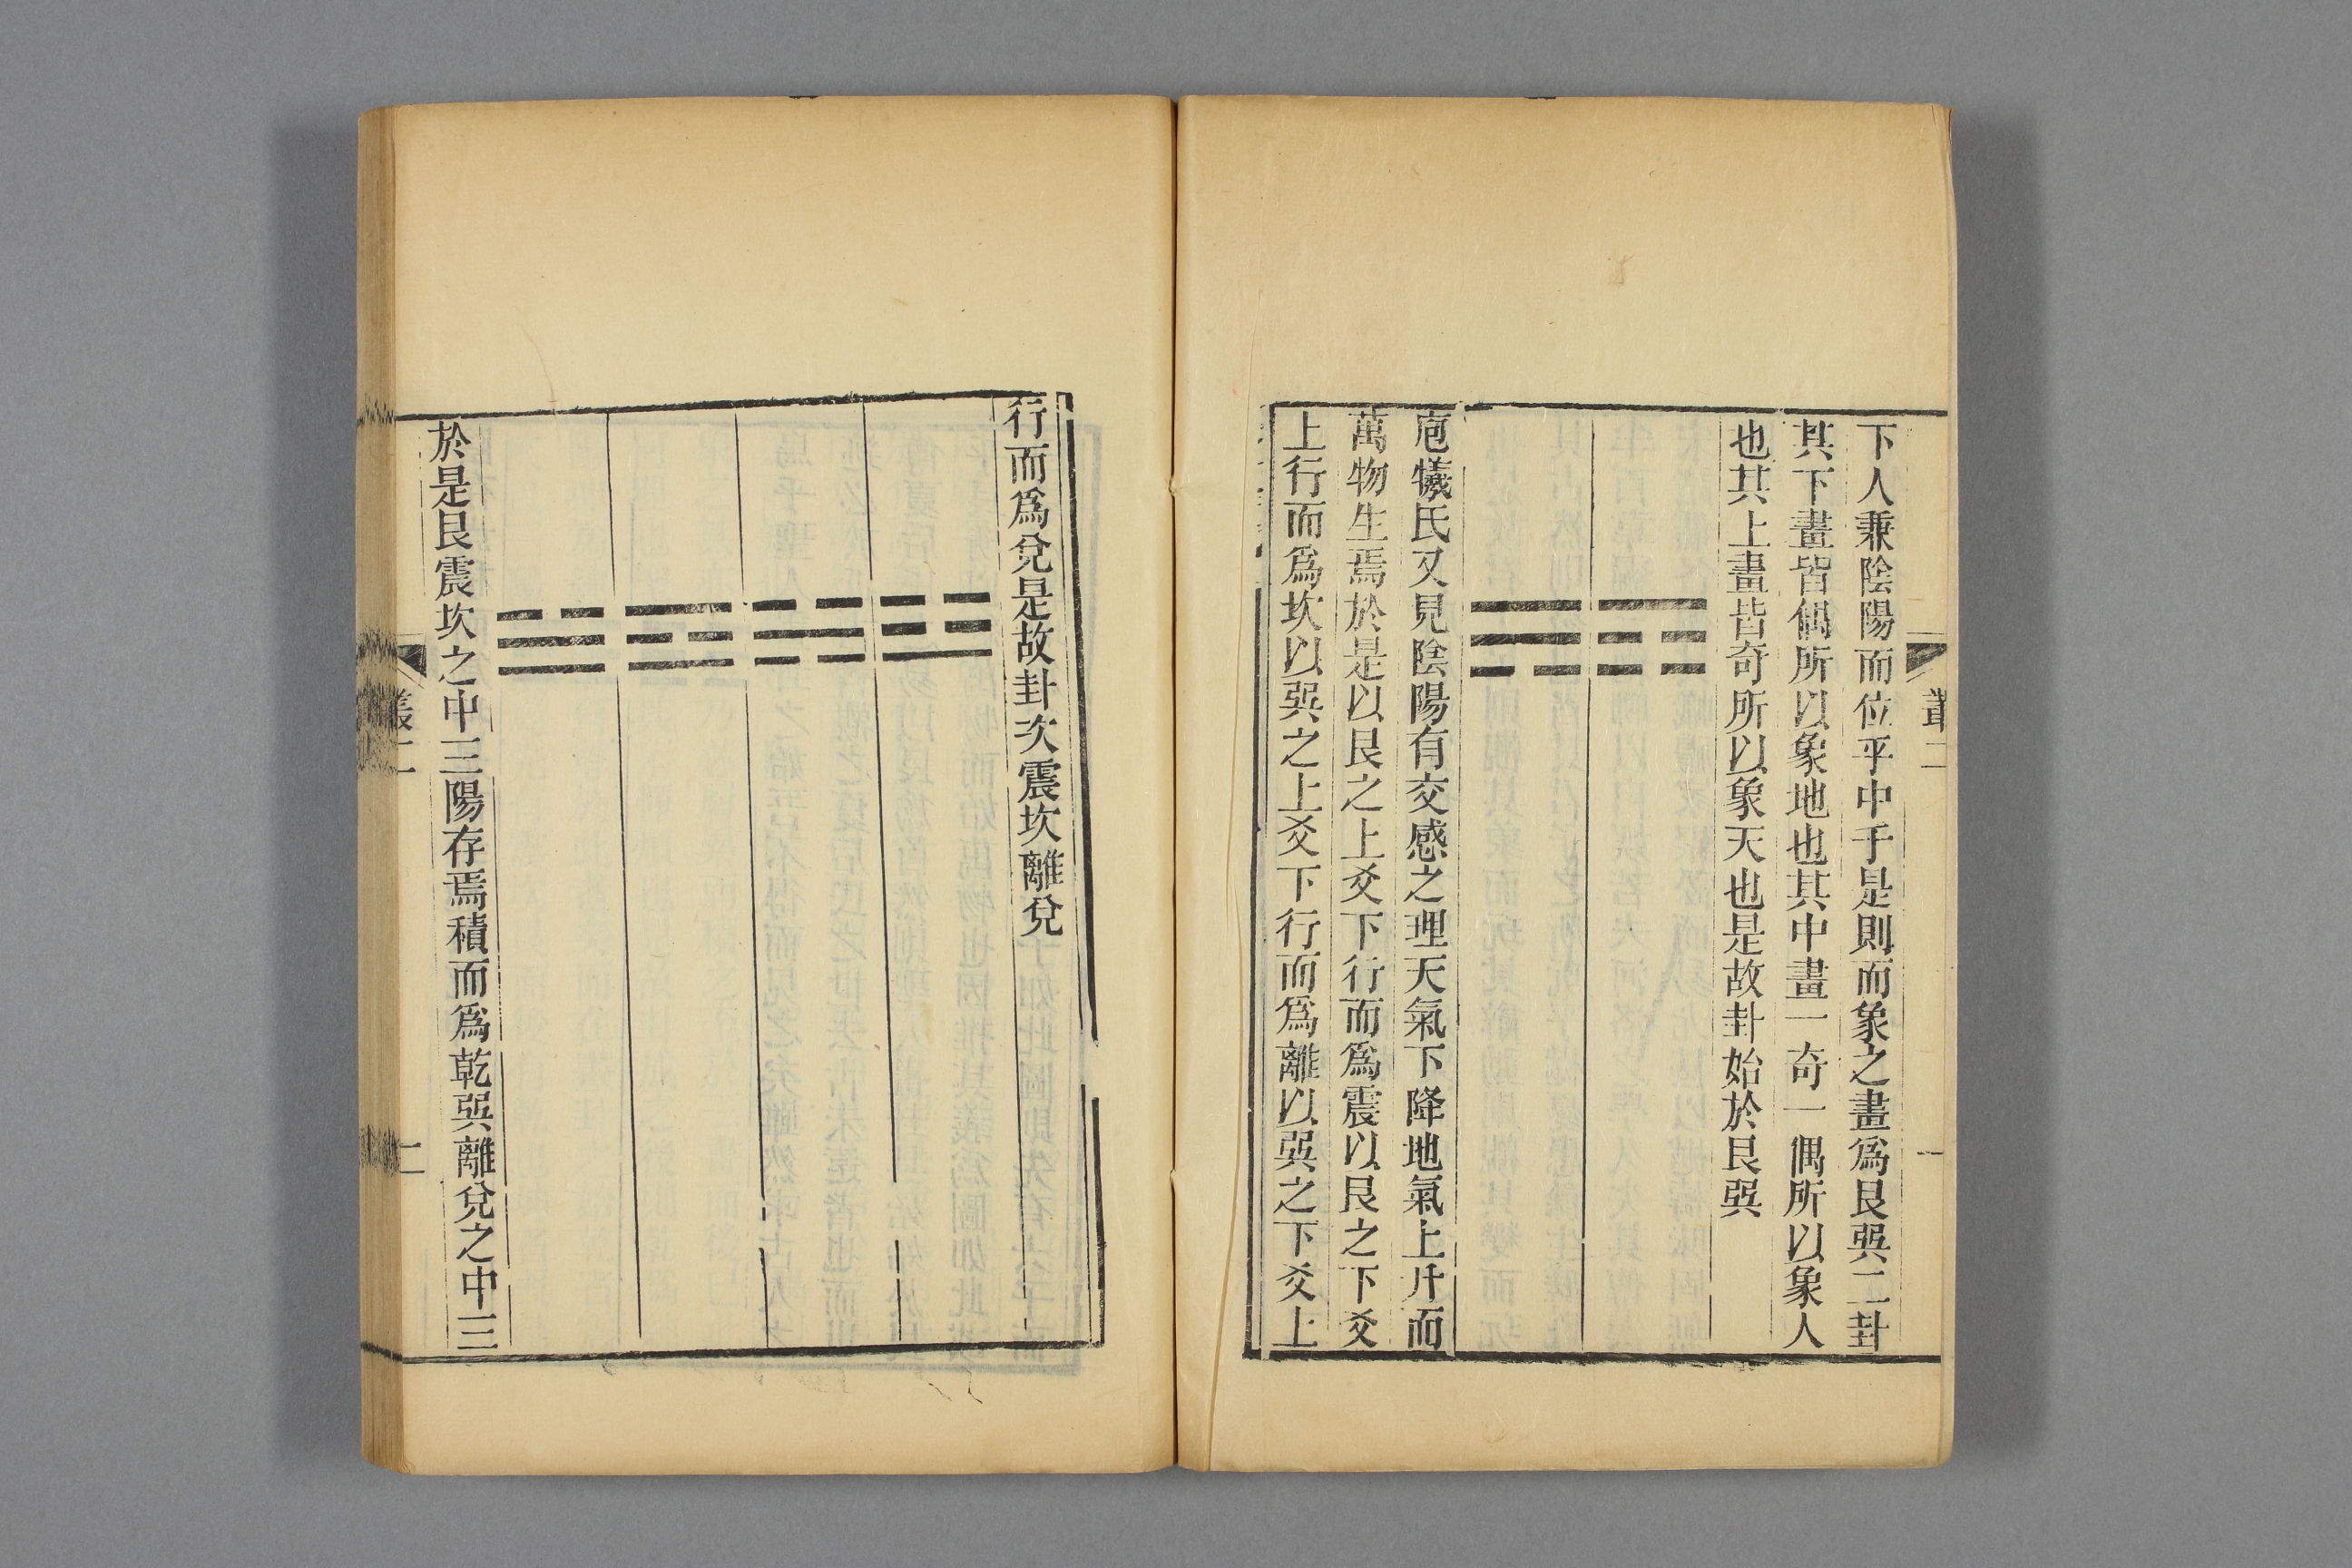 下人兼陰陽而位乎中于是則而象之畫爲艮巽二卦
其下畫皆偶所以象地也其中畫一奇一偶所以象人
也其上畫皆奇所以象天也是故卦始於艮巽
☶
☴
庖犧氏又見陰陽有交感之理天氣下降地氣上升而
萬物生焉於是以艮之上爻下行而爲震以艮之下爻
上行而爲坎以巽之上爻下行而爲離以巽之下爻上
行而爲兌是故卦次震坎離兌
☳
☵
☲
☱
於是艮震坎之中三陽存焉積而爲乾巽離兌之中三
叢二
二